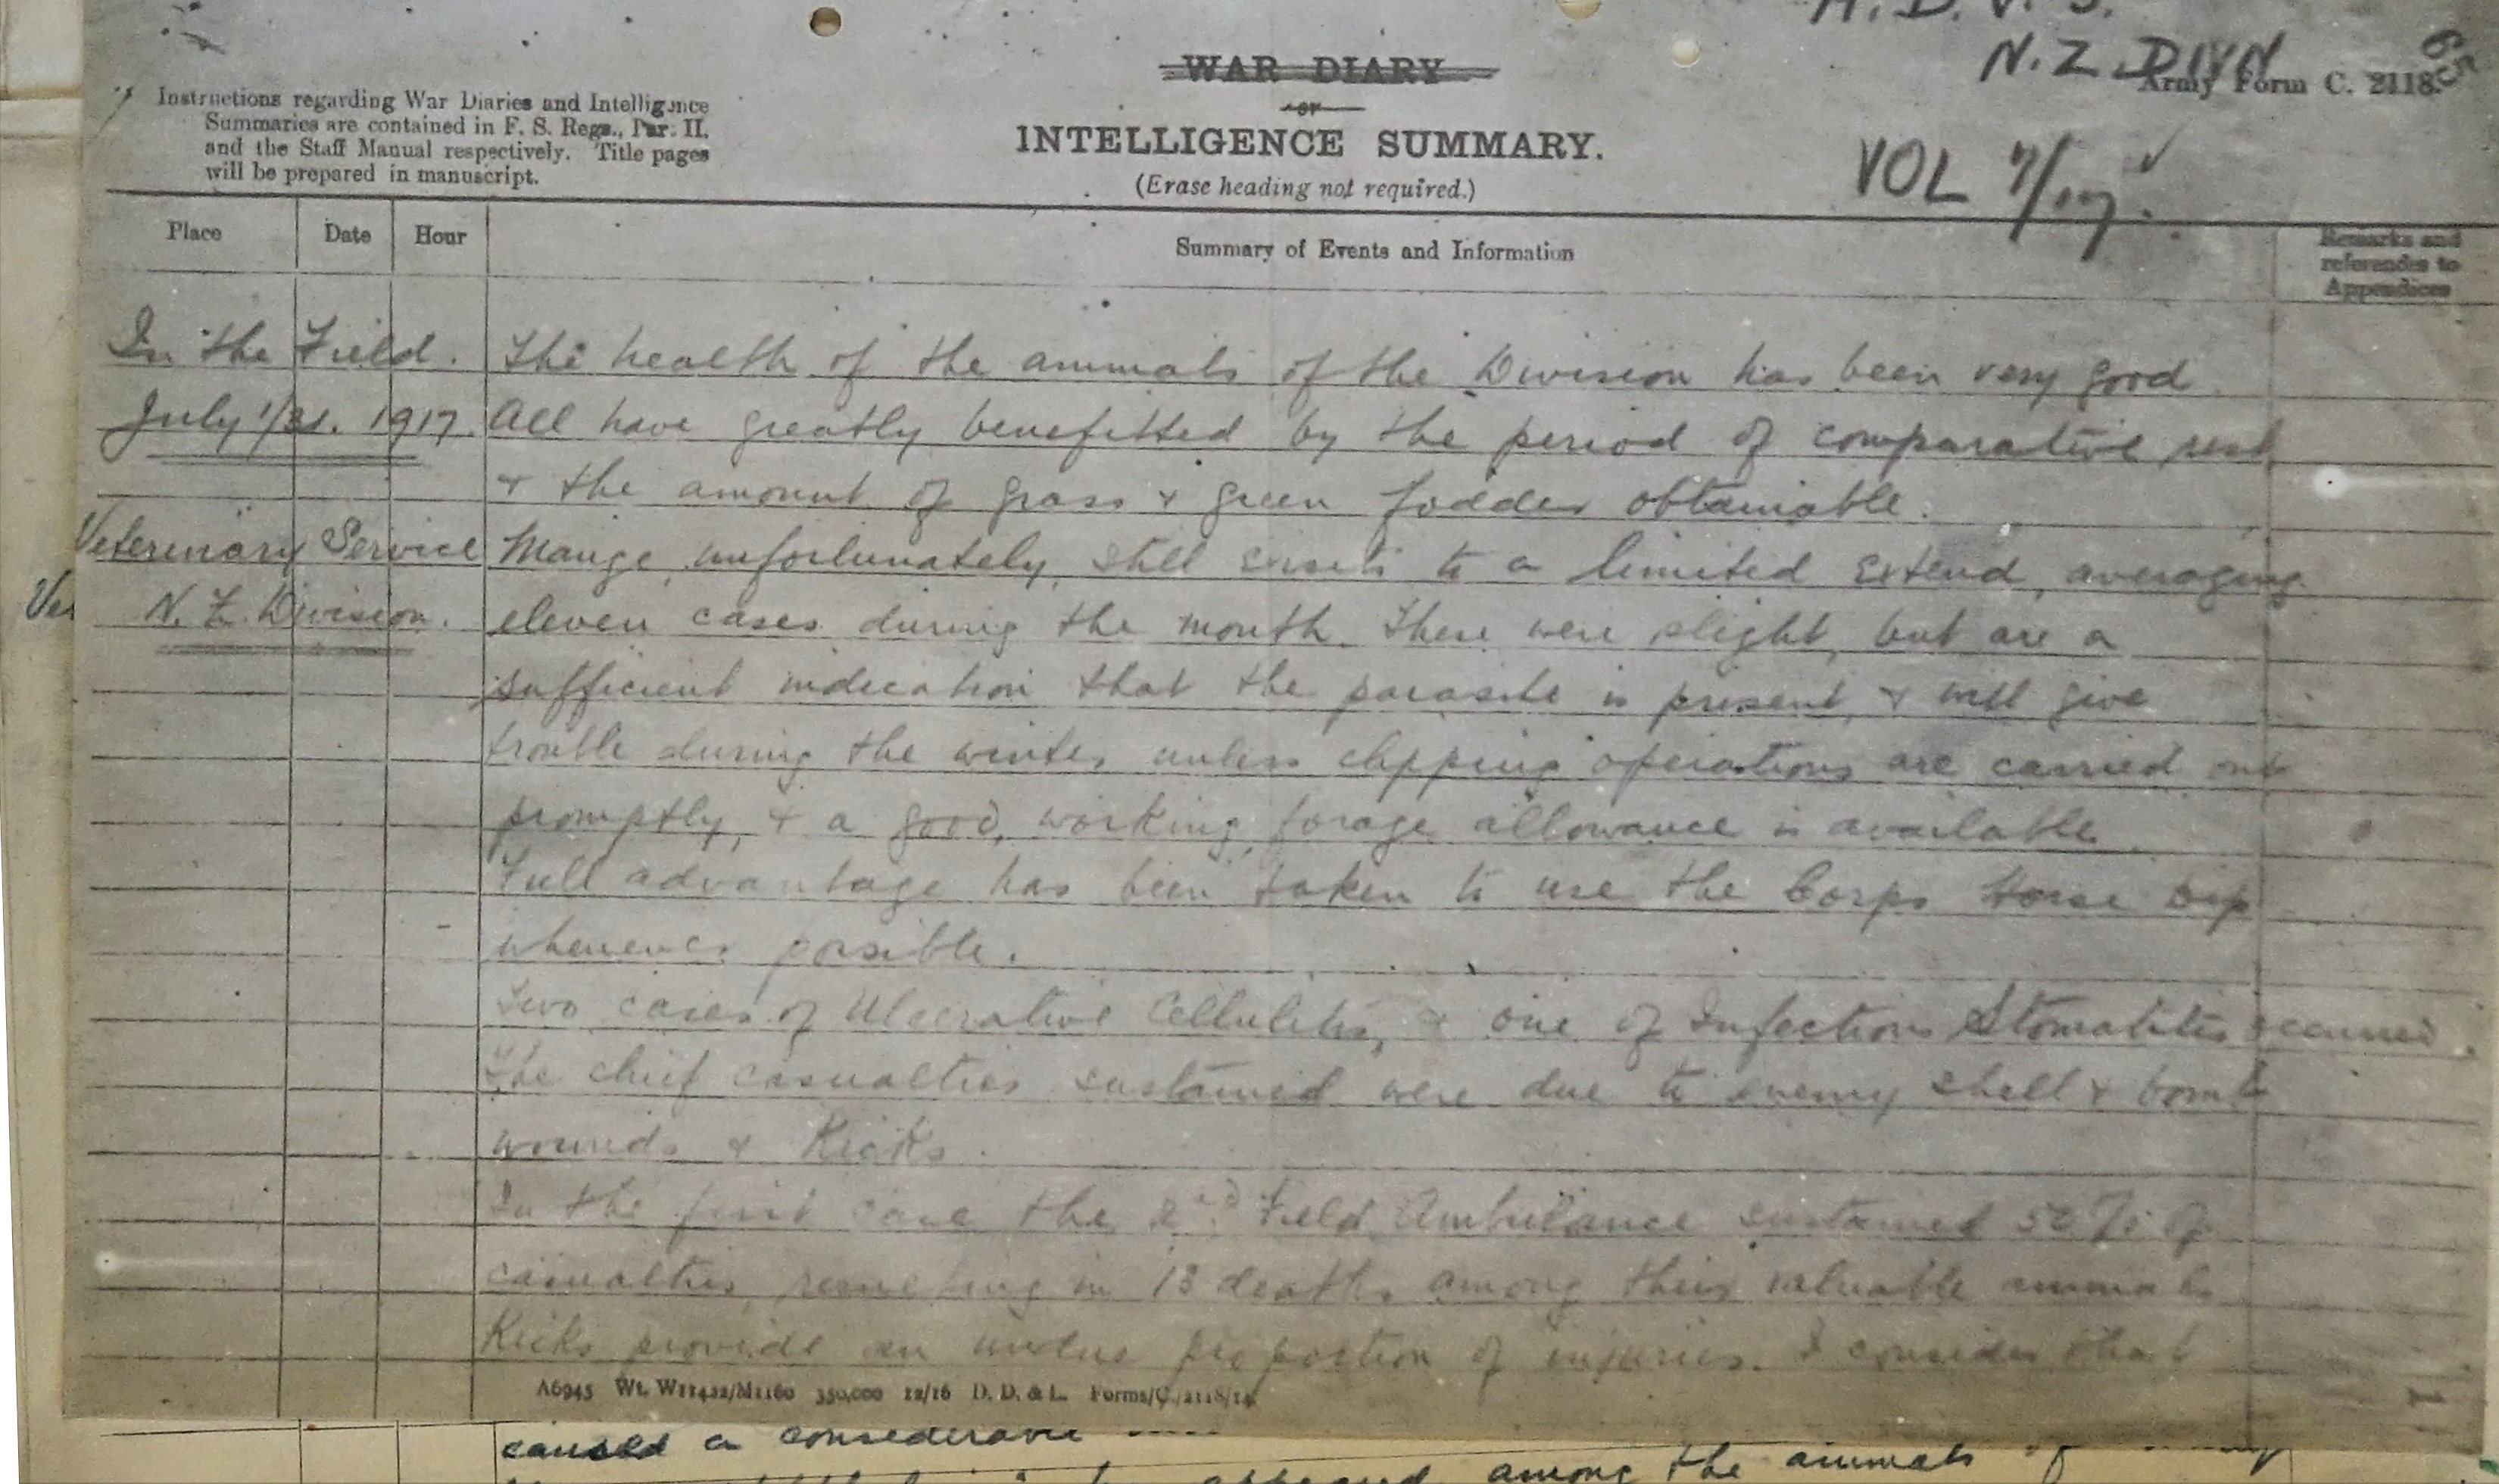 A. D. V. S.
N. Z. DIVN
65
Army Form C. 2118.
WAR DIARY
or
INTELLIGENCE SUMMARY.
(Erase heading not required.)
Instructions regarding War Diaries and Intelligence
Summaries are contained in F. S. Regs., Par. II.
and the Staff Manual respectively. Title pages
will be prepared in manuscript.
VOL 7/17.
Place
Date
Hour
Summary of Events and Information
Remarks and
references to
Appendices
In the Field.
July 1/31. 1917.
Veterinary Service
N. Z. Division.
Ve
The health of the animals of the Division has been very good
All have greatly benefitted by the period of comparative rest
& the amount of grass & green fodder obtainable.
Mange, unfortunately, still exists to a limited extend, averaging
eleven cases during the month. These were slight, but are a
sufficient indication that the parasite is present, & will give
trouble during the winter, unless clipping operations are carried out
promptly, & a good, working, forage allowance is available.
Full advantage has been taken to use the Corps Horse Dip
whenever possible.
Two cases of Ulcerative Cellulitis, & one of Infectious Stomatitis occurred.
The chief casualties sustained were due to enemy shell & bomb
wounds & Kicks.
In the first case the 2nd Field Ambulance sustained 50 % of
casualties, resulting in 13 deaths among their valuable animals
Kicks provide an undue proportion of injuries. I consider that
A6945 Wt. W11422/M1160 350,000 12/16 D. D. & L. Forms/C/2118/14
caused a considerable
among the animals of